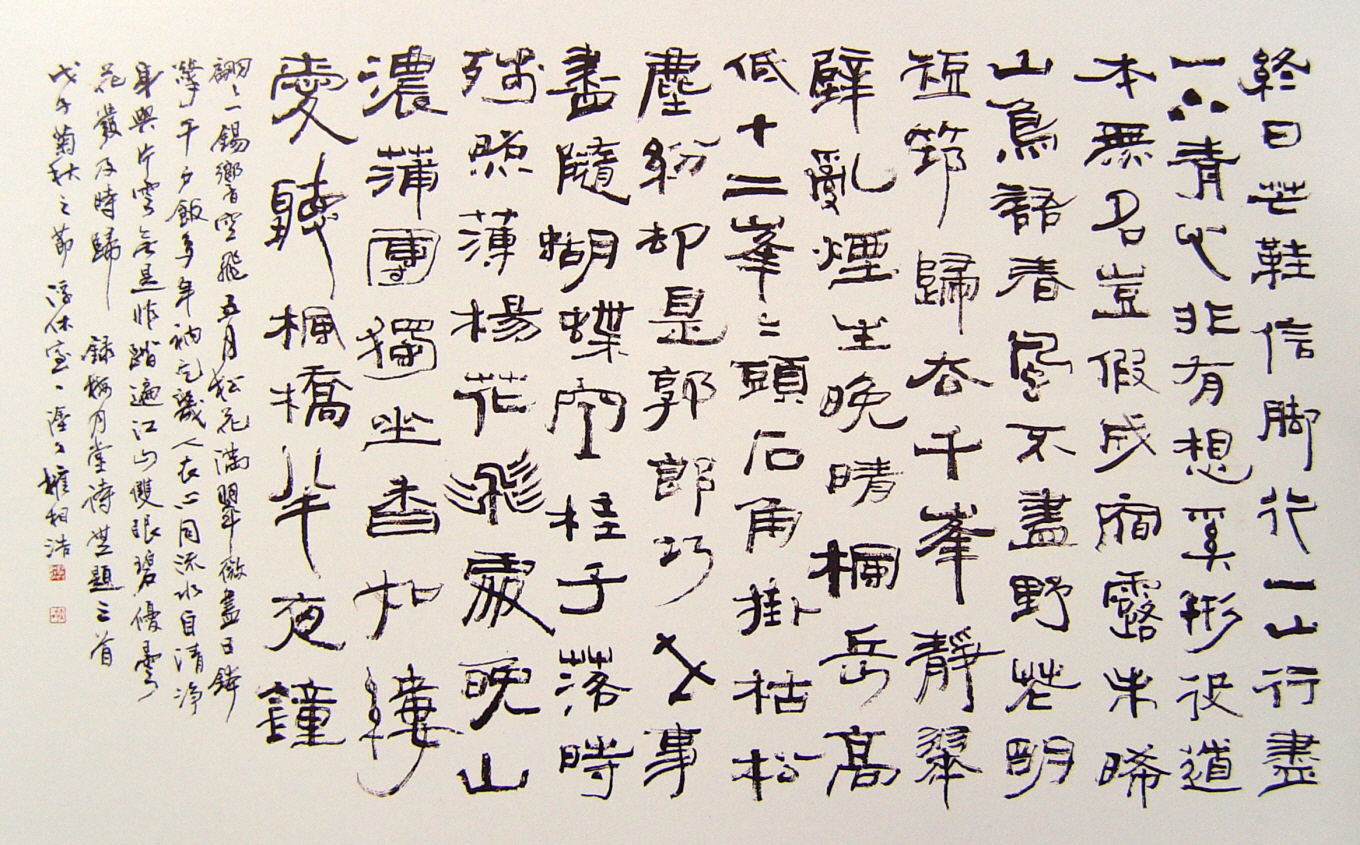 終日芒鞋信脚行一山行盡
一山青心非有想奚形役道
本無名豈假成宿露未晞
山鳥語春風不盡野花明
短笻歸去千峯靜翠
壁亂煙生晩晴楓岳高
低十二峯〻頭石角掛枯松
塵紛却是郭郎巧人事
盡隨蝴蝶空桂子落時
殘照薄楊花飛處晩山
濃蒲團獨坐香如縷
愛聽楓橋半夜鐘
翩〻一錫響空飛五月松花滿翠微盡日鉢
擎千戶飯多年衲乞幾人衣心同流水自清淨
身與片雲無是非踏遍江山雙眼碧優曇
花發及時歸 錄梅月堂詩無題三首
戊子菊秋之節 浮休室 塗丁 權相浩